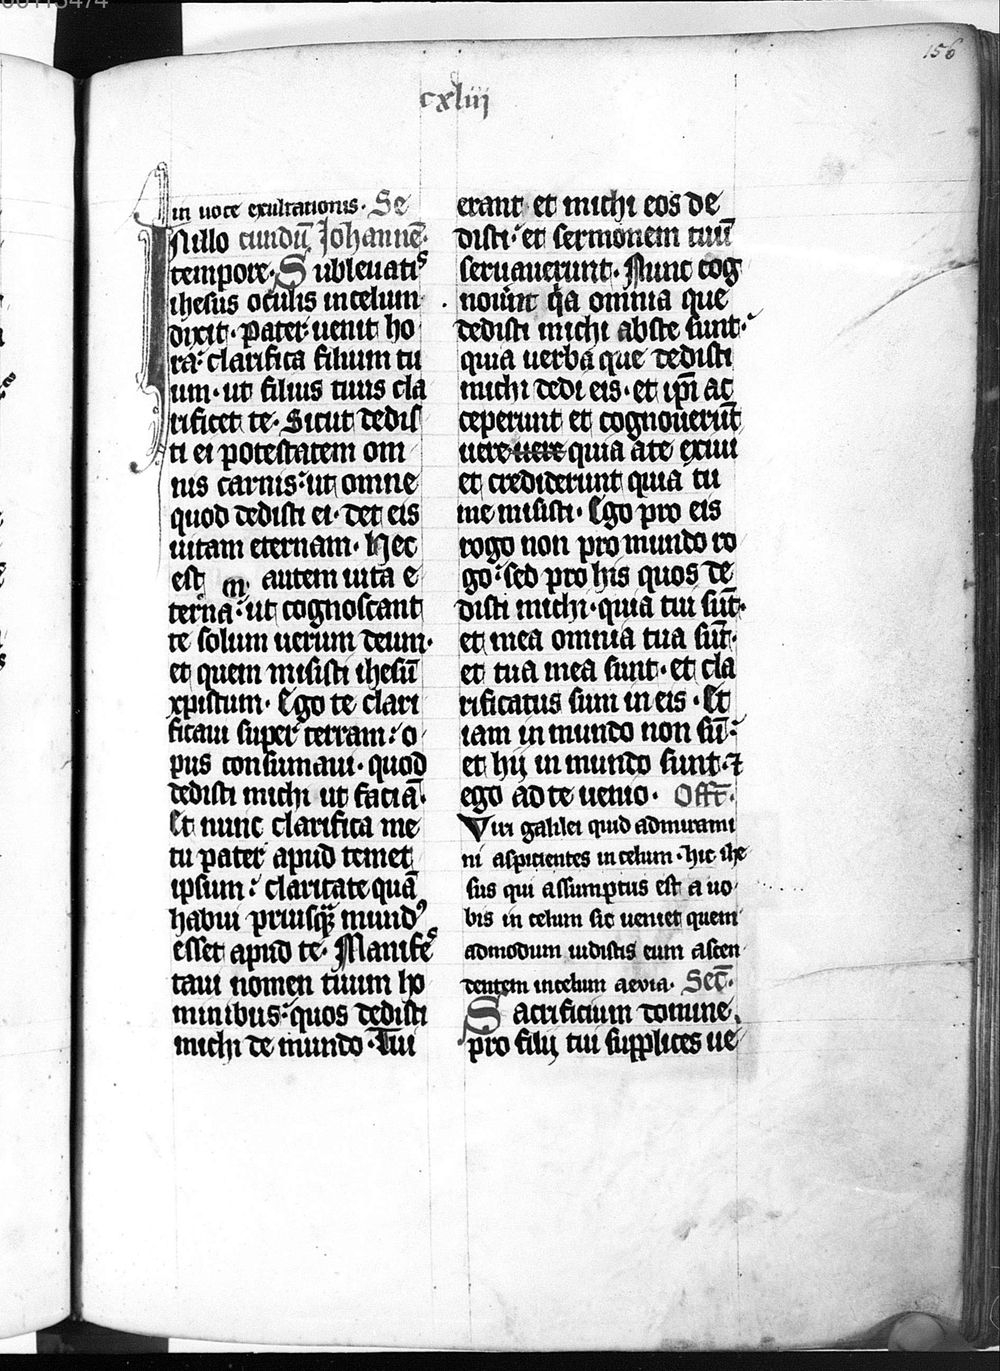 156
cxliii
in uoce exultationis. Se
In illo cundū Johannē.
tempore. Subleuatis
ihesus oculis in celum
dixit. Pater uenit ho
ra: clarifica filium tu
um. ut filius tuus cla
rificet te. Sicut dedis
ti ei potestatem om
nis carnis: ut omne
quod dedisti ei. det eis
uitam eternam. Hec
est autem uita e
terna: ut cognoscant
te solum uerum deum.
et quem misisti ihesū
xpistum. Ego te clari
ficaui super terram: o
pus consumaui. quod
dedisti michi ut faciā.
Et nunc clarifica me
tu pater apud temet
ipsum: claritate quā
habui priusq̄ mundꝰ
esset apud te. Manifes
taui nomen tuum ho
minibus: quos dedisti
michi de mundo. Tui
erant et michi eos de
disti: et sermonem tuū
seruauerunt. Nunc cog
nouert qia omnia que
dedisti michi abste sunt.
quia uerba que dedisti
michi dedi eis. et ipi ac
ceperunt et cognouerūt
uere uere quia ate exiui
et crediderunt quia tu
me misisti. Ego pro eis
rogo non pro mundo ro
go: sed pro his quos de
disti michi. quia tui sūt.
et mea omnia tua sūt.
et tua mea sunt. et cla
rificatus sum in eis. Et
iam in mundo non sū:
et hij in mundo sunt. ⁊
ego ad te uenio. Offt.
Viri galilei quid admirami
ni aspicientes in celum. hic ihe
sus qui assumptus est a uo
bis in celum sic ueniet quem
admodum uidistis eum ascen
dentem in celum aeuia. Sec̄.
Sacrificium domine
pro filij tui supplices ue